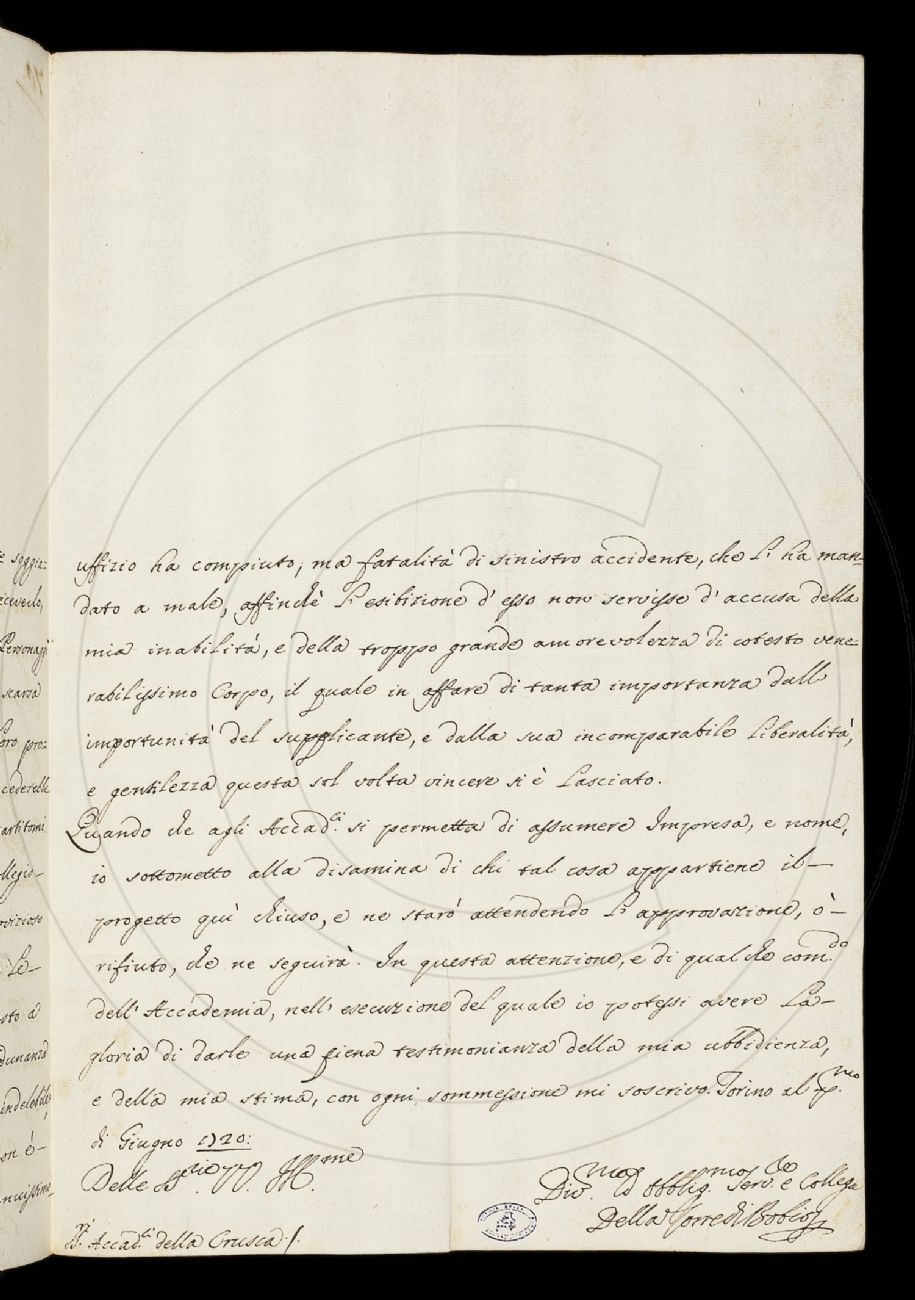 uffizio ha compiuto, ma fatalità di sinistro accidente, che l' ha man=
dato a male, affinchè l' esibizione d' esso non servisse d' accusa della
mia inabilità, e della troppo grande amorevolezza di cotesto vene=
rabilissimo Corpo, il quale in affare di tanta importanza dall'
importunità del supplicante, e dalla sua incomparabile liberalità,
e gentilezza questa sol volta vincere si è lasciato.
Quando che agli Accad.ci si permetta di assumere Impresa, e nome,
io sottometto alla disamina di chi tal cosa appartiene il—
progetto quì chiuso, e ne starò attendendo l' approvazione, ò—
rifiuto, che ne seguirà. In questa attenzione, e di qualche com.do
dell' Accademia, nell' esecuzione del quale io potessi avere la—
gloria di darle una piena testimonianza della mia ubbidienza,
e della mia stima, con ogni sommessione mi soscrivo. Torino al p.mo
di Giugno 1720:
Delle SS.rie VV. Ill.me
Div.mo ed Obblig.mo Serv.e e Collega
Della Torre di Bobio
SS.ri Accad.ci della Crusca /.
è soggia=
riceverlo,
Personagg
scarsa
loro pro=
cederelle
artitomi
llegio—
ovizioso
le—
sto a
dunanza
indelebile
on è—
nuissimo